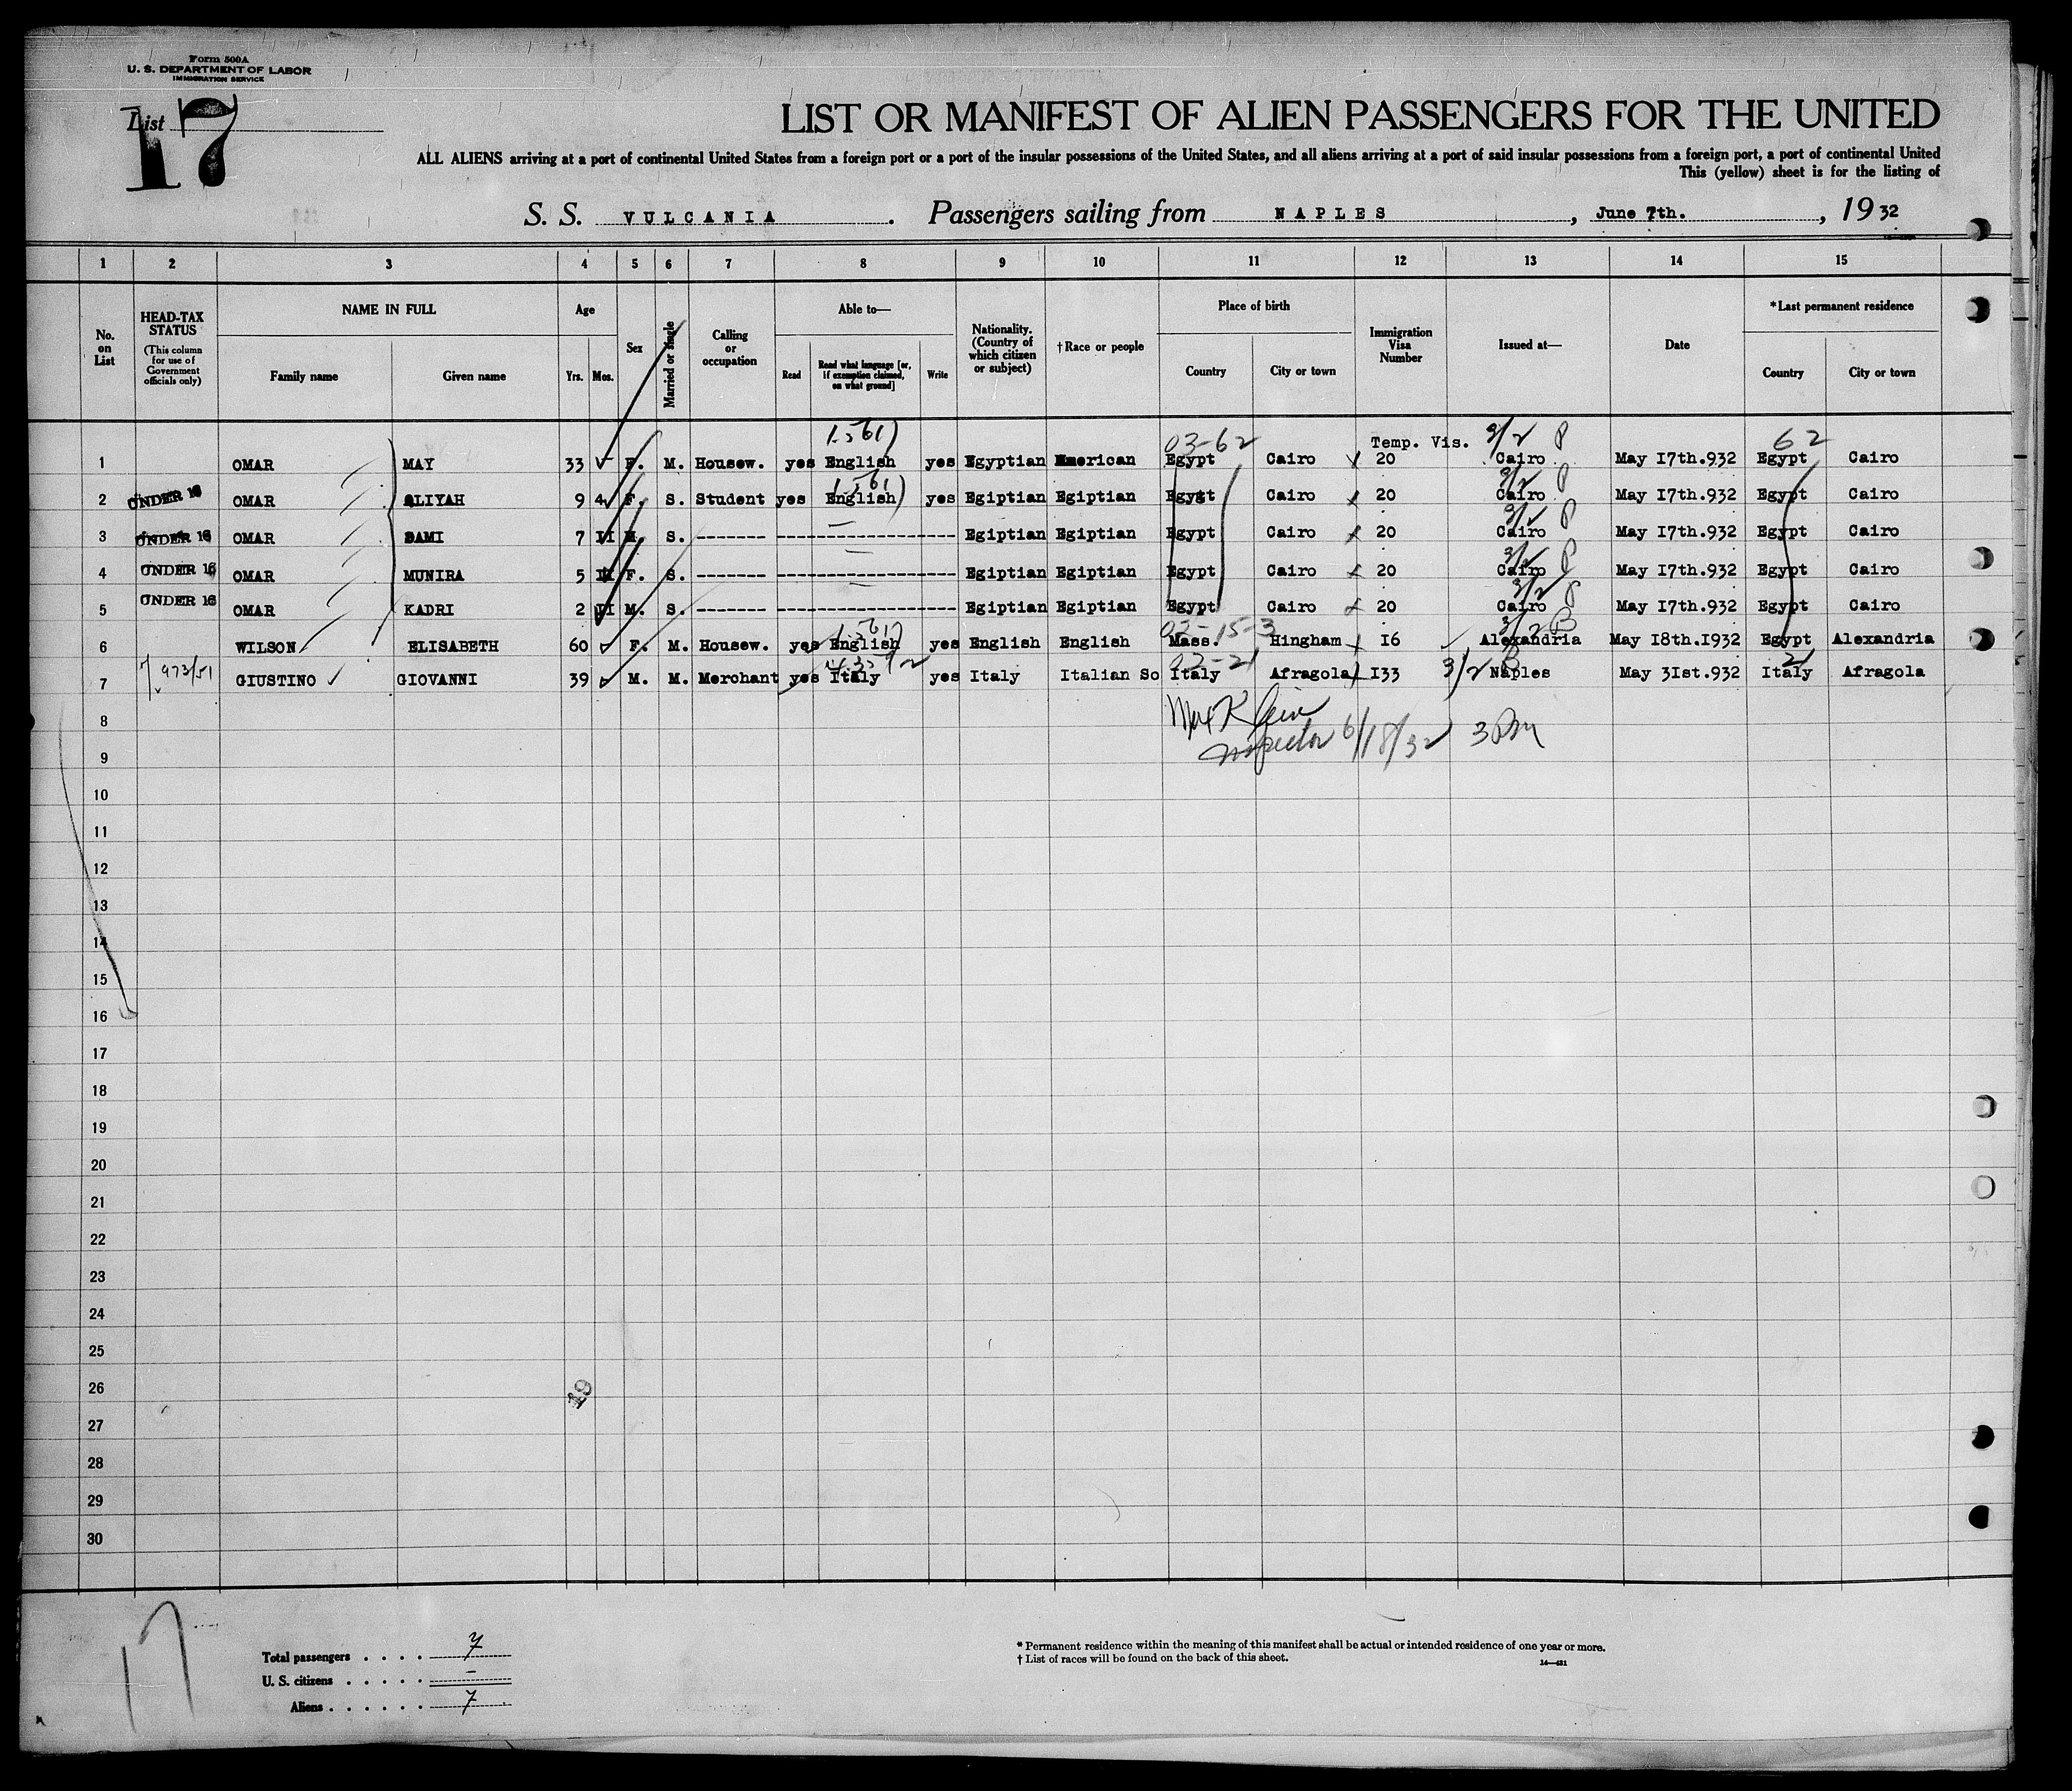 Form 500A
U. S. DEPARTMENT OF LABOR
IMMIGRATION SERVICE
List 17
LIST OR MANIFEST OF ALIEN PASSENGERS FOR THE UNITED
ALL ALIENS arriving at a port of continental United States from a foreign port or a port of the insular possessions of the United States, and all aliens arriving at a port of said insular possessions from a foreign port, a port of continental United
This (yellow) sheet is for the listing of
S. S. VULCANIA. Passengers sailing from NAPLES, June 7th., 1932
1 2 3 4 5 6 7 8 9 10 11 12 13 14 15
No. on List
HEAD-TAX STATUS
(This column for use of Government officials only)
NAME IN FULL
Family name
Given name
Age
Yrs. Mos.
Sex
Married or single
Calling or occupation
Able to—
Read
Read what language [or, if exemption claimed, on what ground]
Write
Nationality. (Country of which citizen or subject)
†Race or people
Place of birth
Country
City or town
Immigration Visa Number
Issued at—
Date
*Last permanent residence
Country
City or town
03-62 Temp. Vis. 3/2 P 62
1 OMAR MAY 33 F. M. Housew. yes English yes Egyptian American Egypt Cairo 20 Cairo May 17th.932 Egypt Cairo
2 UNDER 16 OMAR ALIYAH 9 4 F. S. Student yes English yes Egiptian Egiptian Egypt Cairo 20 Cairo May 17th.932 Egypt Cairo
3 UNDER 16 OMAR SAMI 7 II M. S. ------- ------------------ Egiptian Egiptian Egypt Cairo 20 Cairo May 17th.932 Egypt Cairo
4 UNDER 16 OMAR MUNIRA 5 F. S. ------- ------------------ Egiptian Egiptian Egypt Cairo 20 Cairo May 17th.932 Egypt Cairo
5 UNDER 16 OMAR KADRI 2 II M. S. ------- ------------------ Egiptian Egiptian Egypt Cairo 20 Cairo May 17th.932 Egypt Cairo
6 WILSON ELISABETH 60 F. M. Housew. yes English yes English English Mass. Hingham I6 Alexandria May 18th.1932 Egypt Alexandria
7 973/51 GIUSTINO GIOVANNI 39 M. M. Merchant yes Italy yes Italy Italian So Italy Afragola I33 3/2 Naples May 3Ist.932 Italy Afragola
8 Max Klein
9 Inspector 6/18/32 3 PM
10
11
12
13
14
15
16
17
18
19
20
21
22
23
24
25
26 19
27
28
29
30
17
Total passengers . . . . 7
U. S. citizens . . . . . –
Aliens . . . . . . 7
* Permanent residence within the meaning of this manifest shall be actual or intended residence of one year or more.
† List of races will be found on the back of this sheet.
14—431